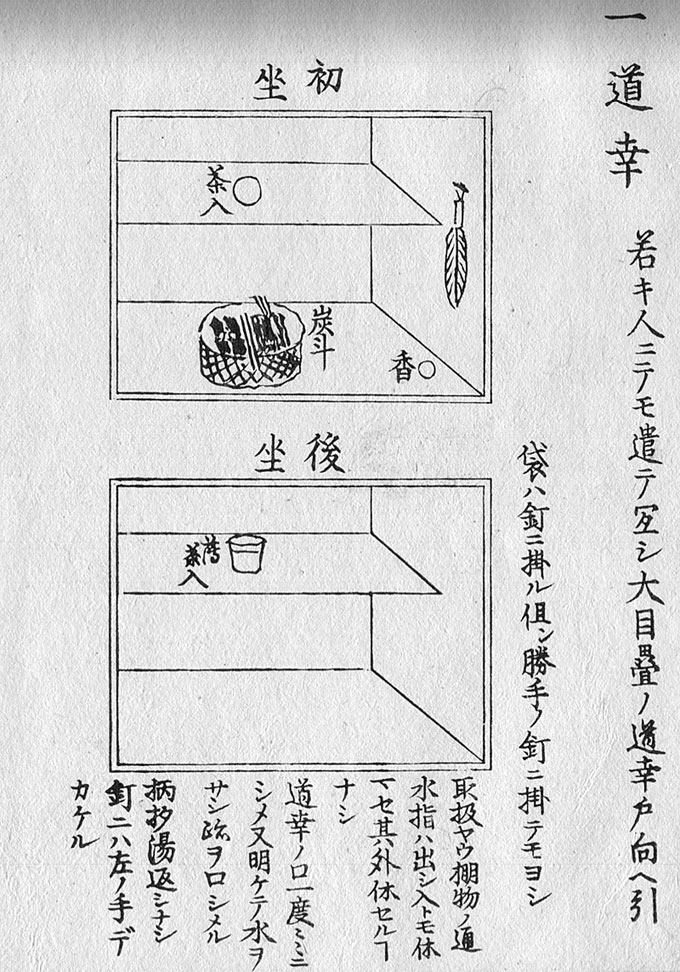 一 道幸
若キ人ニテモ遣テ宜シ大目畳ノ道幸戸向ヘ引
袋ハ釘ニ掛ル但シ勝手ノ釘ニ掛テモヨシ
初坐
茶入
炭斗
香
後坐
薄茶入
取扱ヤウ棚物ノ通
水指ハ出シ入トモ休
マセ其外休セルヿ
ナシ
道幸ノ口一度〻〻ニ
シメ又明ケテ水ヲ
サシ
ヲロシメル
柄杓湯返シナシ
釘ニハ左ノ手デ
カケル